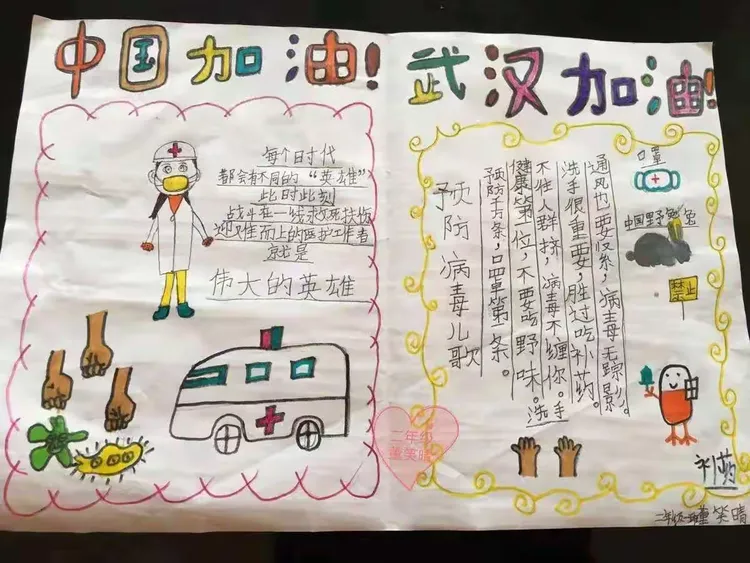 中国加油!
每个日时代
都会有不同的“英雄”
此时此刻
战斗在一线救死扶伤
迎难而上的医护工作者
就是
伟大的英雄
二年级
董美晴
武汉加油!
预防病毒儿歌
预防千万条,口罩第一条。
健康第一位,不要吃野味。
不往人群挤,病毒不缠你。
洗手很重要,胜过吃补药。
通风也要坚,病毒无踪影。
口罩
中国野兔
禁止
洗手
补药
二年级董笑晴